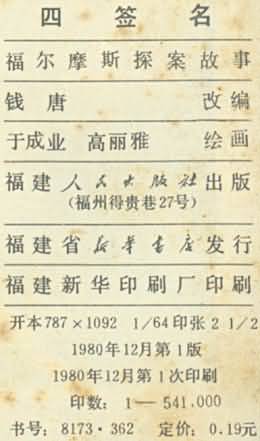 四签名
福尔摩斯探案故事
钱唐 改编
于成业 高丽雅 绘画
福建人民出版社出版
(福州得贵巷27号)
福建省新华书店发行
福建新华印刷厂印刷
开本787×1092 1/64印张2 1/2
1980年12月第1版
1980年12月第1次印刷
印数：1—541,000
书号：8173·362 定价：0.19元